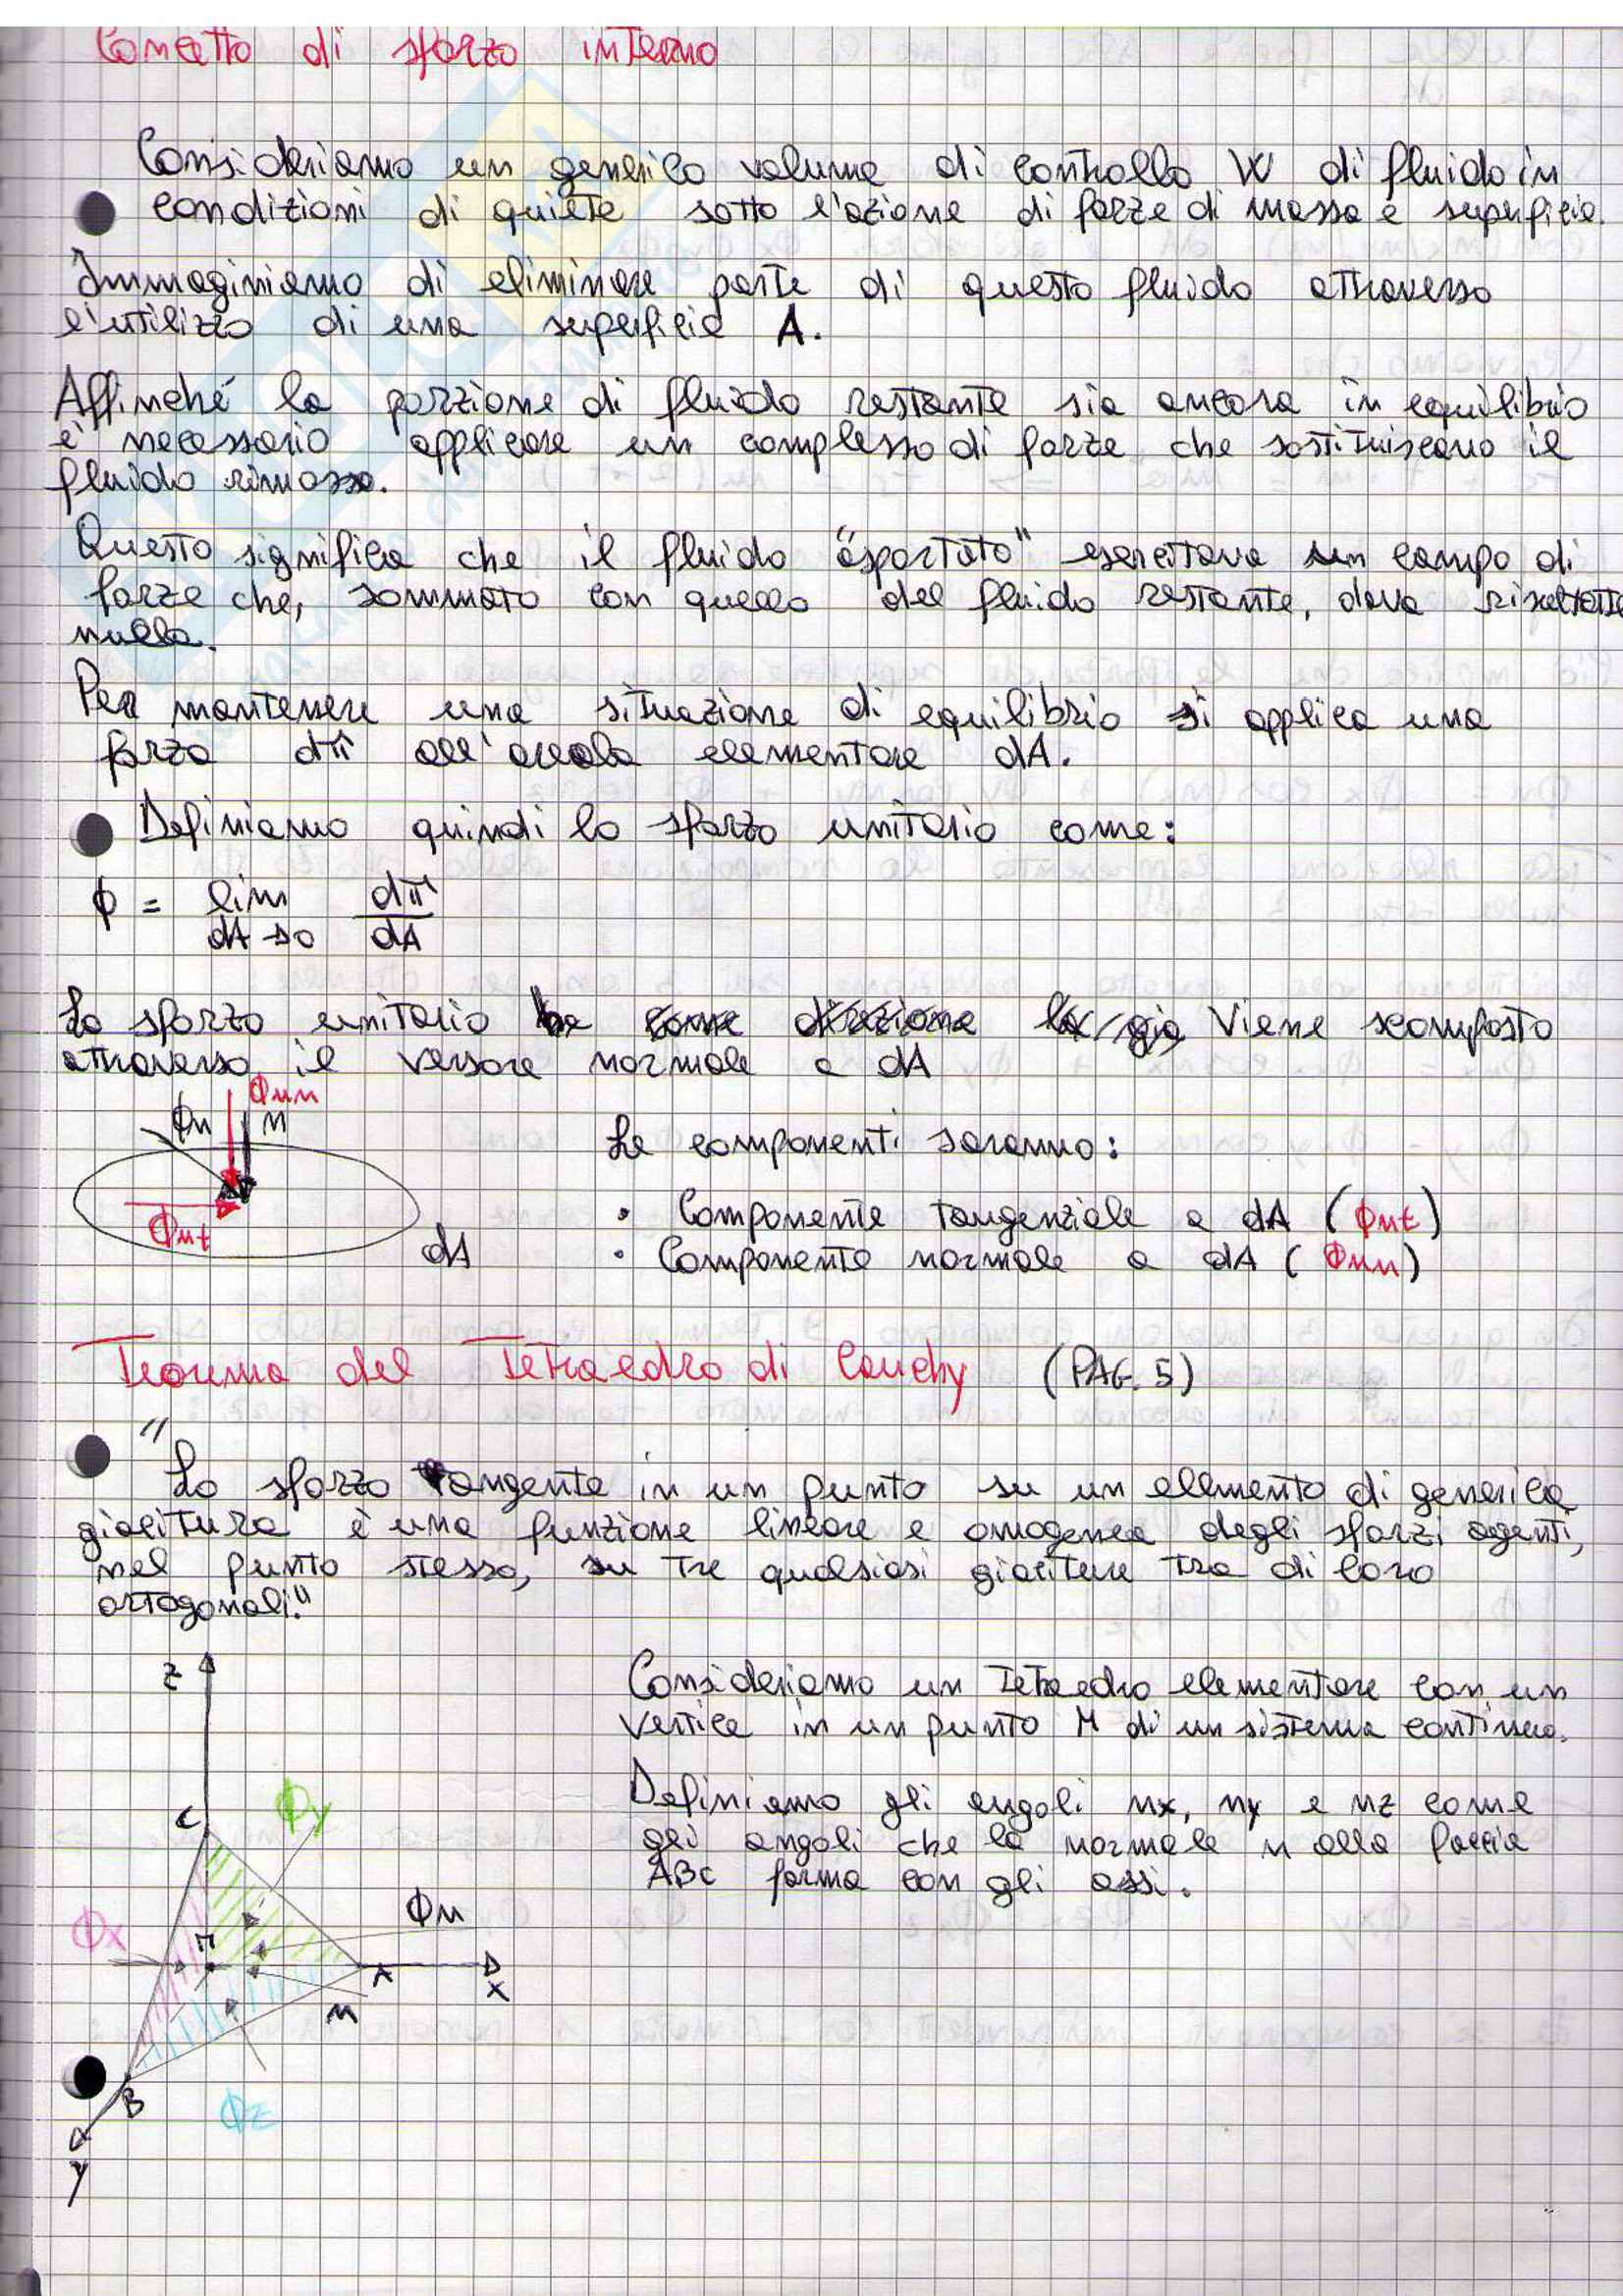 Concetto di sforzo interno
Consideriamo un generico volume di controllo W di fluido in
condizioni di quiete sotto l'azione di forze di massa e superficie.
Immaginiamo di eliminare parte di questo fluido attraverso
l'utilizzo di una superficie A.
Affinché la porzione di fluido restante sia ancora in equilibrio
è necessario applicare un complesso di forze che sostituiscano il
fluido rimosso.
Questo significa che il fluido "asportato" esercitava un campo di
forze che, sommato con quello del fluido restante, dava risultante
nulla.
Per mantenere una situazione di equilibrio si applica una
forza dπ all'areola elementare dA.
Definiamo quindi lo sforzo unitario come:
ϕ = lim dπ
dA→0 dA
Lo sforzo unitario viene scomposto
attraverso il versore normale a dA
ϕnn
ϕn n
Le componenti saranno:
• Componente tangenziale a dA (ϕnt)
ϕnt
dA
• Componente normale a dA (ϕnn)
Teorema del Tetraedro di Cauchy (PAG. 5)
"Lo sforzo tangente in un punto su un elemento di generica
giacitura è una funzione lineare e omogenea degli sforzi agenti,
nel punto stesso, su tre qualsiasi giaciture tra di loro
ortogonali."
z
Consideriamo un tetraedro elementare con un
vertice in un punto M di un sistema continuo.
Definiamo gli angoli nx, ny e nz come
gli angoli che la normale n alla faccia
ABC forma con gli assi.
C
ϕy
ϕn
ϕx
M
A
x
n
B
ϕz
y